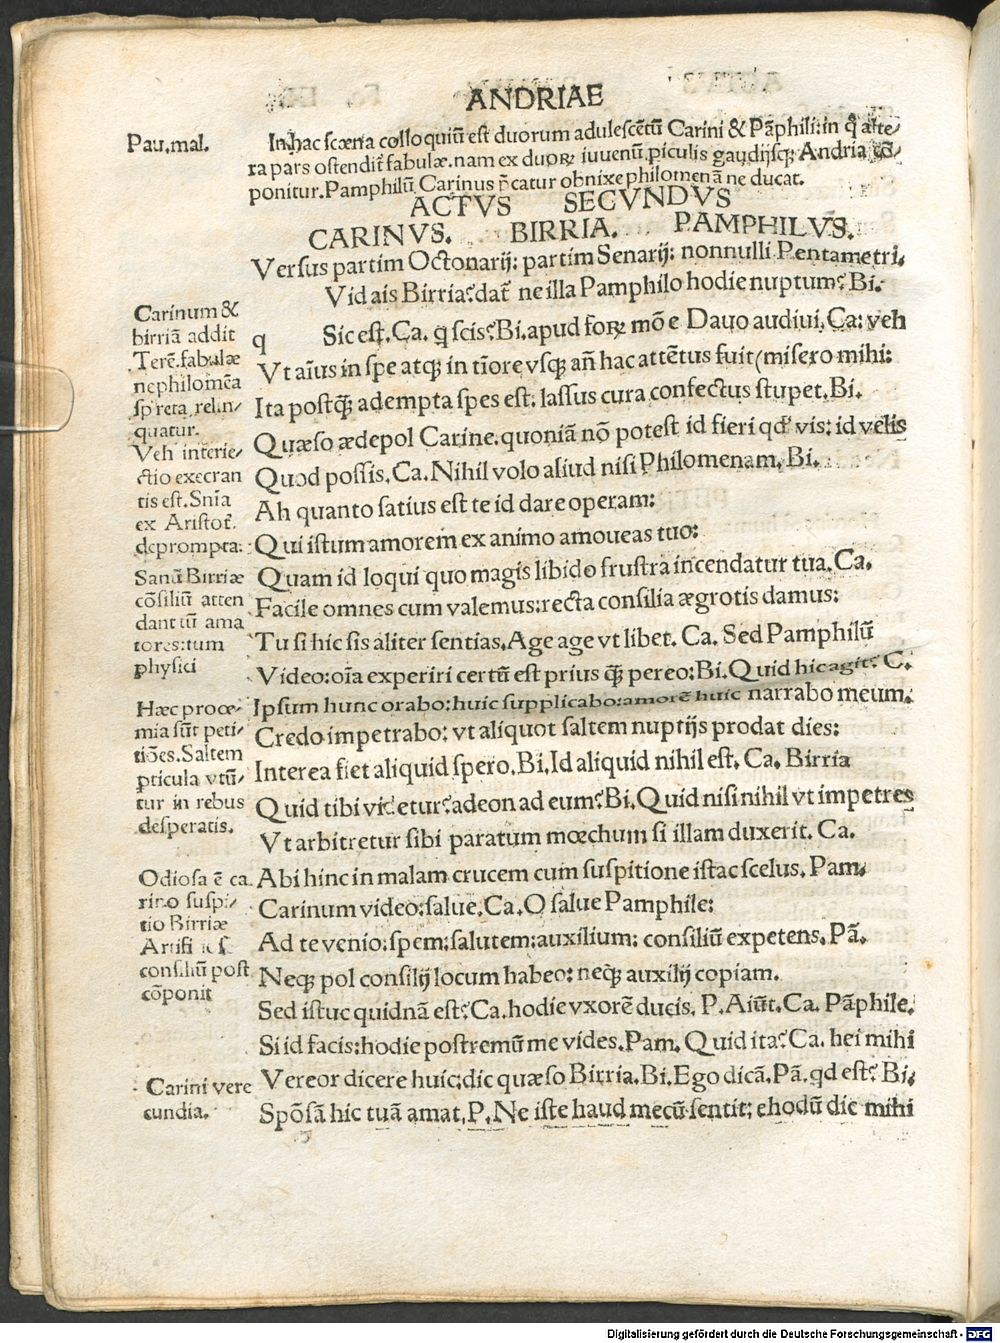 ANDRIAE
Pau.mal.
In hac scæna colloquiū est duorum adulescētū Carini & Pāphili: in q̄ alte/
ra pars ostendit̄ fabulæ.nam ex duoꝝ iuuenū.piculis gaudijsqꝫ Andria cō/
ponitur.Pamphilū Carinus p̄catur obnixe philomenā ne ducat.
ACTVS SECVNDVS
CARINVS. BIRRIA. PAMPHILVS.
Versus partim Octonarij: partim Senarij: nonnulli Pentametri.
Vid ais Birria? dat̄ ne illa Pamphilo hodie nuptum? Bi.
q Sic est. Ca. q̄ scis? Bi. apud foꝝ mō e Dauo audiui. Ca: veh
Vt aīus in spe atqꝫ in tīore vsqꝫ an̄ hac attētus fuit (misero mihi:
Ita postqꝫ̄ adempta spes est: lassus cura confectus stupet. Bi.
Quæso ædepol Carine. quoniā nō potest id fieri qd' vis: id velis
Quod possis. Ca. Nihil volo aliud nisi Philomenam. Bi.
Ah quanto satius est te id dare operam:
Qui istum amorem ex animo amoueas tuo:
Quam id loqui quo magis libido frustra incendatur tua. Ca.
Facile omnes cum valemus: recta consilia ægrotis damus:
Tu si hic sis aliter sentias. Age age vt libet. Ca. Sed Pamphilū
Video: oīa experiri certū est prius qꝫ̄ pereo: Bi. Quid hic agit? C.
Ipsum hunc orabo: huic supplicabo: amorē huic narrabo meum.
Credo impetrabo: vt aliquot saltem nuptijs prodat dies:
Interea fiet aliquid spero. Bi. Id aliquid nihil est. Ca. Birria
Quid tibi videtur? adeon ad eum? Bi. Quid nisi nihil vt impetres
Vt arbitretur sibi paratum mœchum si illam duxerit. Ca.
Abi hinc in malam crucem cum suspitione istac scelus. Pam.
Carinum video: salue. Ca. O salue Pamphile:
Ad te venio: spem: salutem: auxilium: consiliū expetens. Pā.
Neqꝫ pol consilij locum habeo: neqꝫ auxilij copiam.
Sed istuc quidnā est? Ca. hodie vxorē ducis. P. Aiūt. Ca. Pāphile.
Si id facis: hodie postremū me vides. Pam. Quid ita? Ca. hei mihi
Vereor dicere huic: dic quæso Birria. Bi. Ego dicā. Pā. qd est? Bi.
Spōsā hic tuā amat. P. Ne iste haud mecū sentit: ehodū dic mihi
Carinum &
birriā addit
Terē. fabulæ
ne philomēa
sp̄reta relin/
quatur.
Veh interie/
ctio execran
tis est. Snīa
ex Aristot̄.
deprompta:
Sanū Birriæ
cōsiliū atten
dant tū ama
tores: tum
physici
Hæc procœ/
mia sūt peti/
tiōes. Saltem
pticula vtū/
tur in rebus
desperatis.
Odiosa ē ca.
rino suspi/
tio Birriæ
consiliū post
cōponit
Carini vere
cundia.
Digitalisierung gefördert durch die Deutsche Forschungsgemeinschaft - DFG